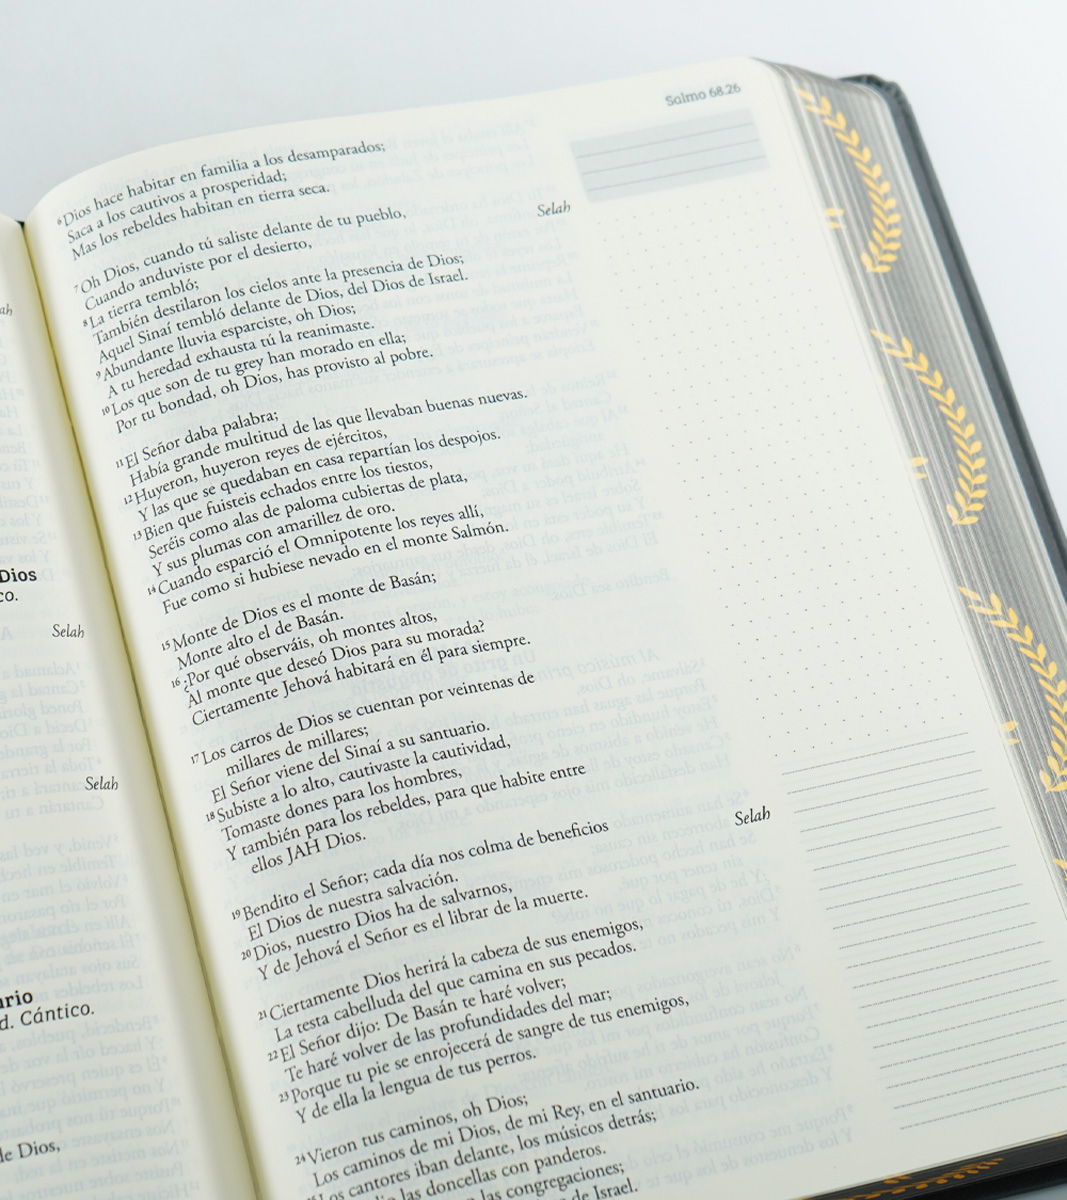 Salmo 68.26
⁶Dios hace habitar en familia a los desamparados;
Saca a los cautivos a prosperidad;
Mas los rebeldes habitan en tierra seca.
⁷Oh Dios, cuando tú saliste delante de tu pueblo,
Cuando anduviste por el desierto,
Selah
⁸La tierra tembló;
También destilaron los cielos ante la presencia de Dios;
Aquel Sinaí tembló delante de Dios, del Dios de Israel.
⁹Abundante lluvia esparciste, oh Dios;
A tu heredad exhausta tú la reanimaste.
¹⁰Los que son de tu grey han morado en ella;
Por tu bondad, oh Dios, has provisto al pobre.
¹¹El Señor daba palabra;
Había grande multitud de las que llevaban buenas nuevas.
¹²Huyeron, huyeron reyes de ejércitos,
Y las que se quedaban en casa repartían los despojos.
¹³Bien que fuisteis echados entre los tiestos,
Seréis como alas de paloma cubiertas de plata,
Y sus plumas con amarillez de oro.
¹⁴Cuando esparció el Omnipotente los reyes allí,
Fue como si hubiese nevado en el monte Salmón.
¹⁵Monte de Dios es el monte de Basán;
Monte alto el de Basán.
¹⁶¿Por qué observáis, oh montes altos,
Al monte que deseó Dios para su morada?
Ciertamente Jehová habitará en él para siempre.
¹⁷Los carros de Dios se cuentan por veintenas de
millares de millares;
El Señor viene del Sinaí a su santuario.
¹⁸Subiste a lo alto, cautivaste la cautividad,
Tomaste dones para los hombres,
Y también para los rebeldes, para que habite entre
ellos JAH Dios.
¹⁹Bendito el Señor; cada día nos colma de beneficios
El Dios de nuestra salvación.
Selah
²⁰Dios, nuestro Dios ha de salvarnos,
Y de Jehová el Señor es el librar de la muerte.
²¹Ciertamente Dios herirá la cabeza de sus enemigos,
La testa cabelluda del que camina en sus pecados.
²²El Señor dijo: De Basán te haré volver;
Te haré volver de las profundidades del mar;
²³Porque tu pie se enrojecerá de sangre de tus enemigos,
Y de ella la lengua de tus perros.
²⁴Vieron tus caminos, oh Dios;
Los caminos de mi Dios, de mi Rey, en el santuario.
Los cantores iban delante, los músicos detrás;
las doncellas con panderos.
las congregaciones;
de Israel.
Dios
Selah
Selah
d. Cántico.
de Dios,